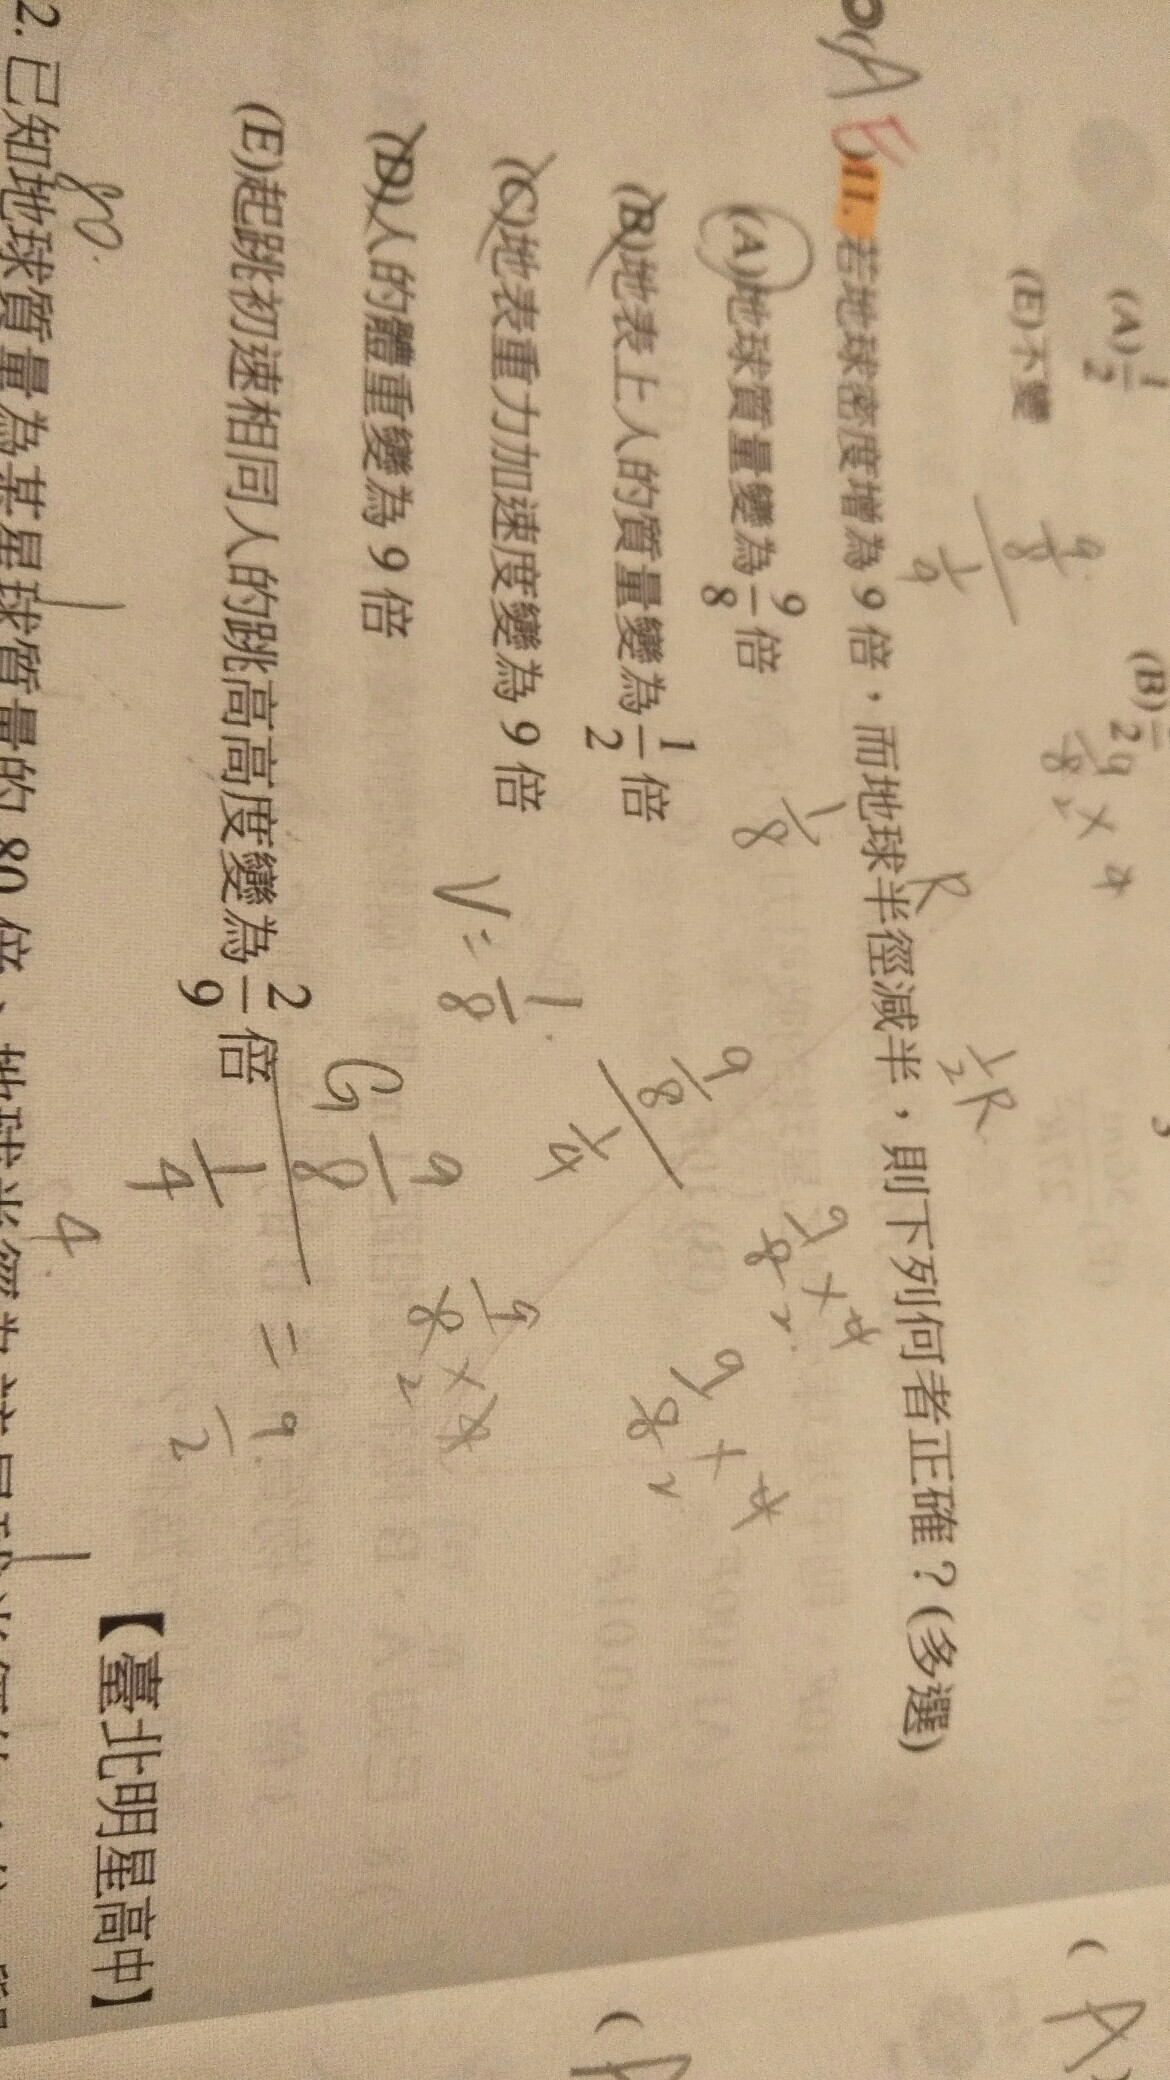 (A) 1/2
(B) 2
(E)不變
9/8
1/4
9/8 × 4
2
R
1/2 R
(AE)11. 若地球密度增為 9 倍，而地球半徑減半，則下列何者正確？(多選)
(A)地球質量變為 9/8 倍
1/8
(B)地表上人的質量變為 1/2 倍
9/8
1/4
9/8 × 4
2
(C)地表重力加速度變為 9 倍
V = 1/8
9/8 × 4
2
(D)人的體重變為 9 倍
G 9/8
1/4
= 9/2
9/8 × 4
2
(E)起跳初速相同人的跳高高度變為 2/9 倍
【臺北明星高中】
80
4
2. 已知地球質量為某星球質量的 80 倍、地球半徑為該星球半徑的
(A)